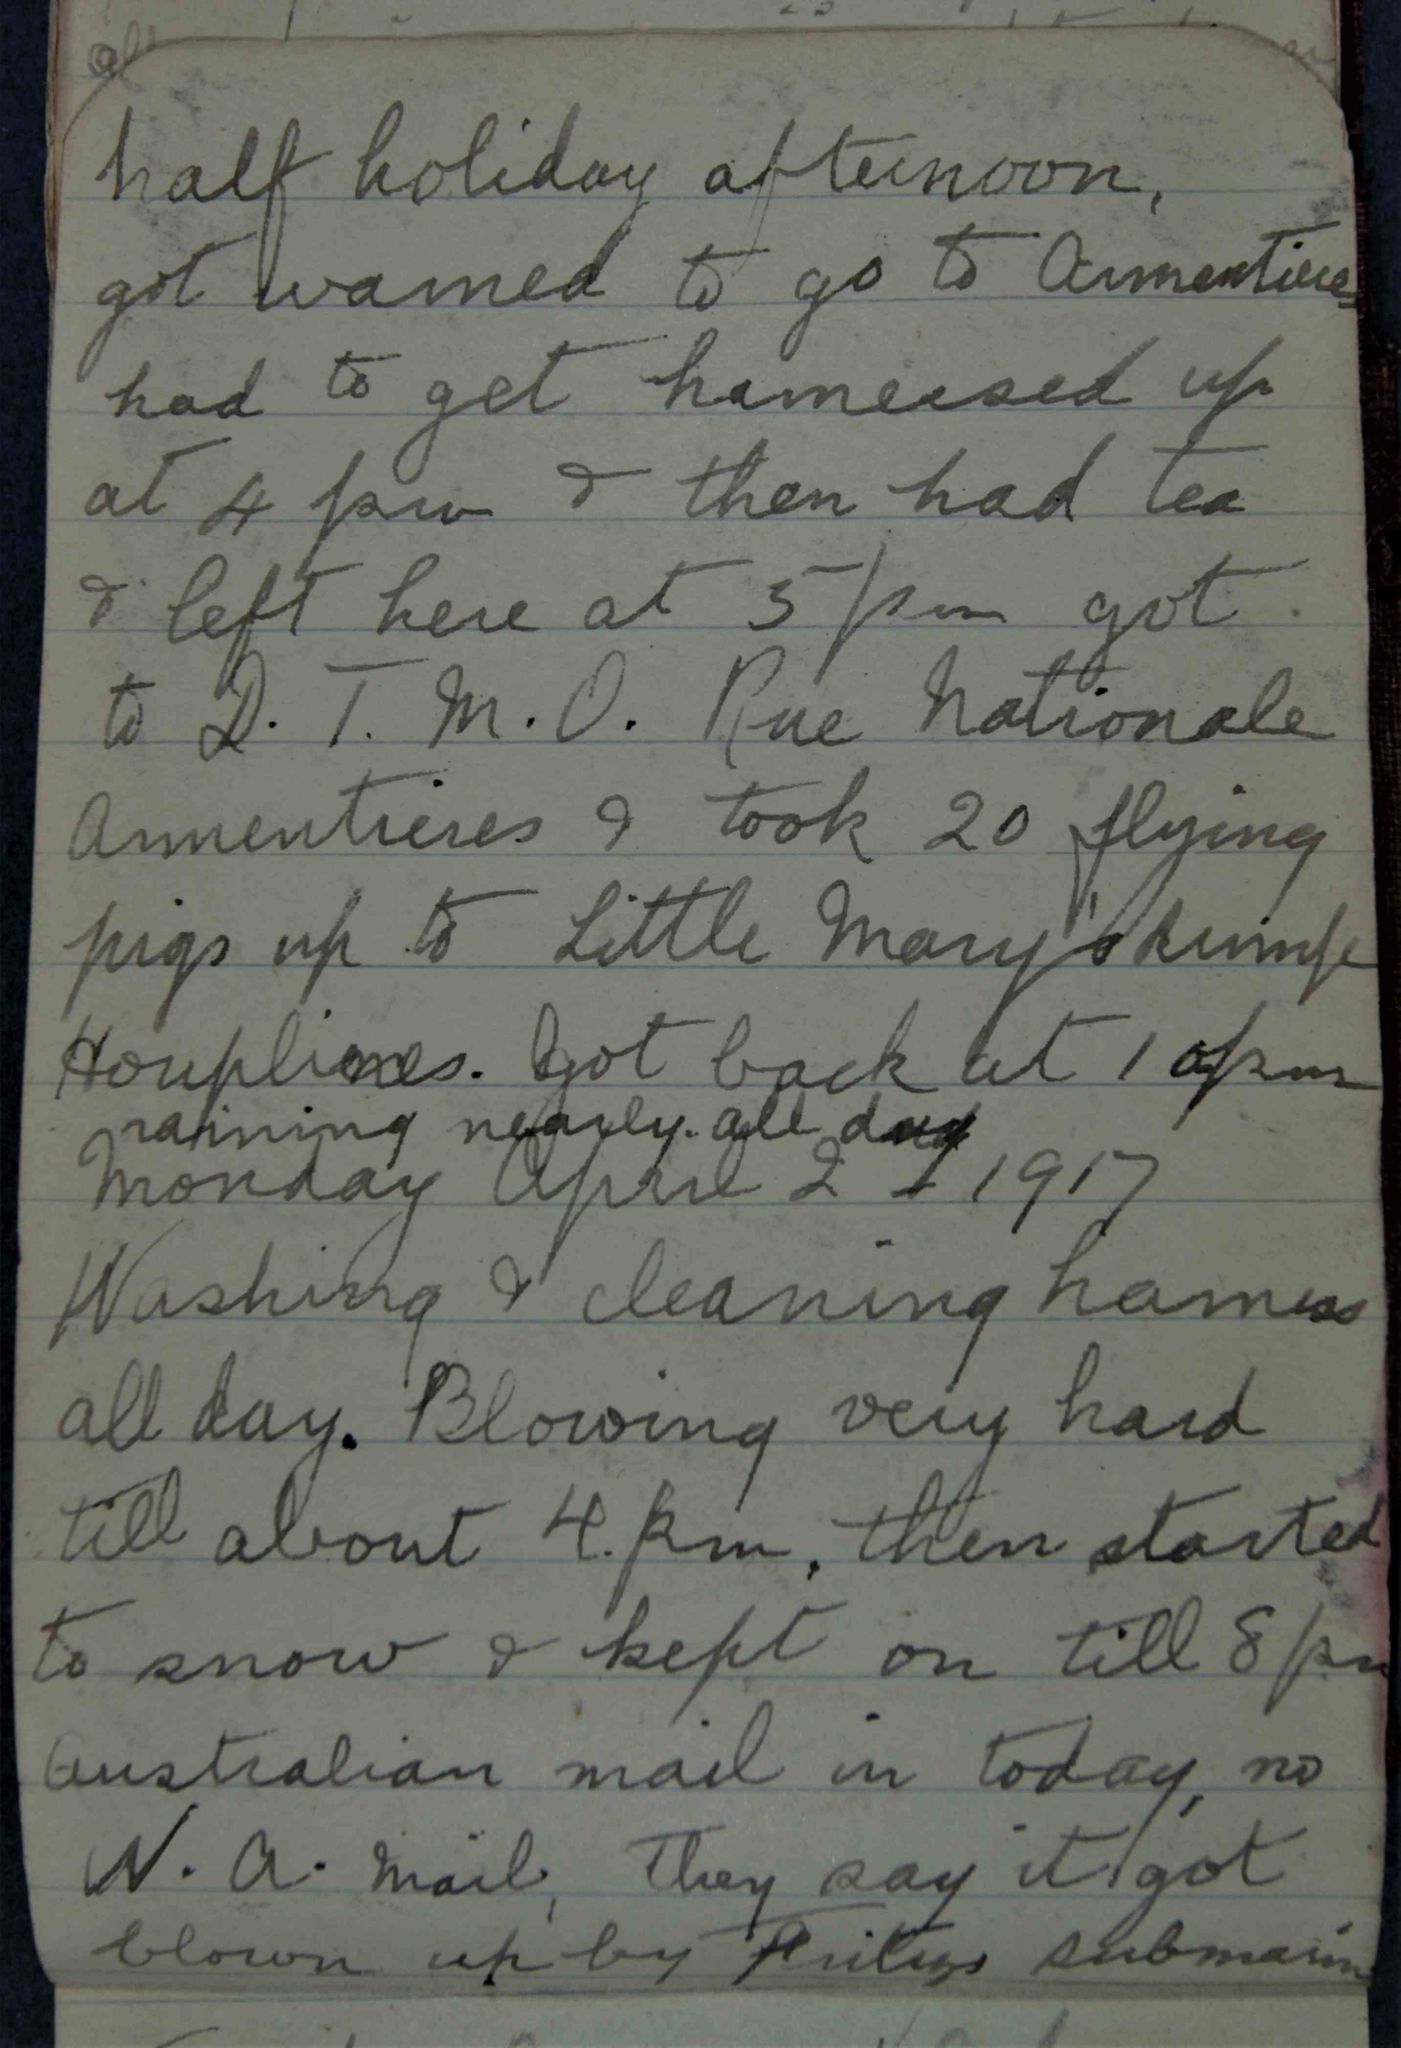 half holiday afternoon,
got warned to go to Armentieres
had to get harnessed up
at 4 pm & then had tea
& left here at 5 pm got
to D. T. M. O. Rue Nationale
Armentieres & took 20 flying
pigs up to Little Mary's dump
Houplines. Got back at 10pm
raining nearly all day
Monday April 2 1917
Washing & cleaning harness
all day. Blowing very hard
till about 4. pm, then started
to snow & kept on till 8 pm
Australian mail in today, no
W. A. mail, They say it got
blown up by Fritzs submarine